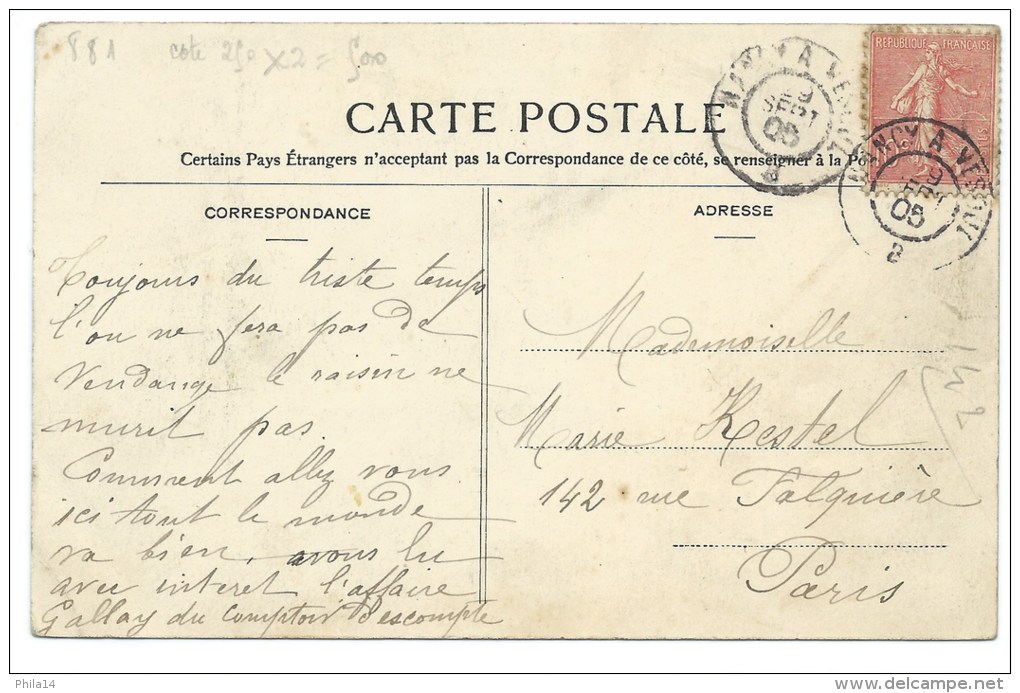 881 cote 250 x 2 = 500
REPUBLIQUE FRANÇAISE
NANCY A VESOUL
29
SEPT
05
B
NANCY A VESOUL
29
SEPT
05
B
CARTE POSTALE
Certains Pays Étrangers n'acceptant pas la Correspondance de ce côté, se renseigner à la Po
CORRESPONDANCE
Toujours du triste temps
l'on ne fera pas de
Vendange le raisin ne
murit pas.
Comment allez vous
ici tout le monde
va bien, avons lu
avec interet l'affaire
Gallay du Comptoir d'escompte
ADRESSE
Mademoiselle
Marie Kestel
142 rue Falguière
Paris
142
Phila14
www.delcampe.net